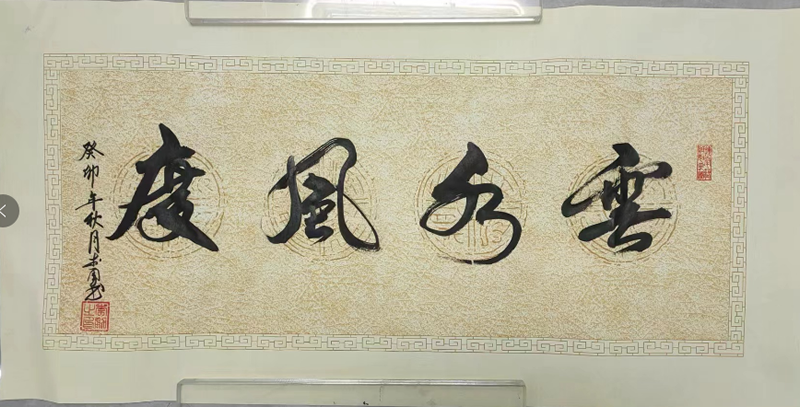 雲水風度
癸卯年秋月